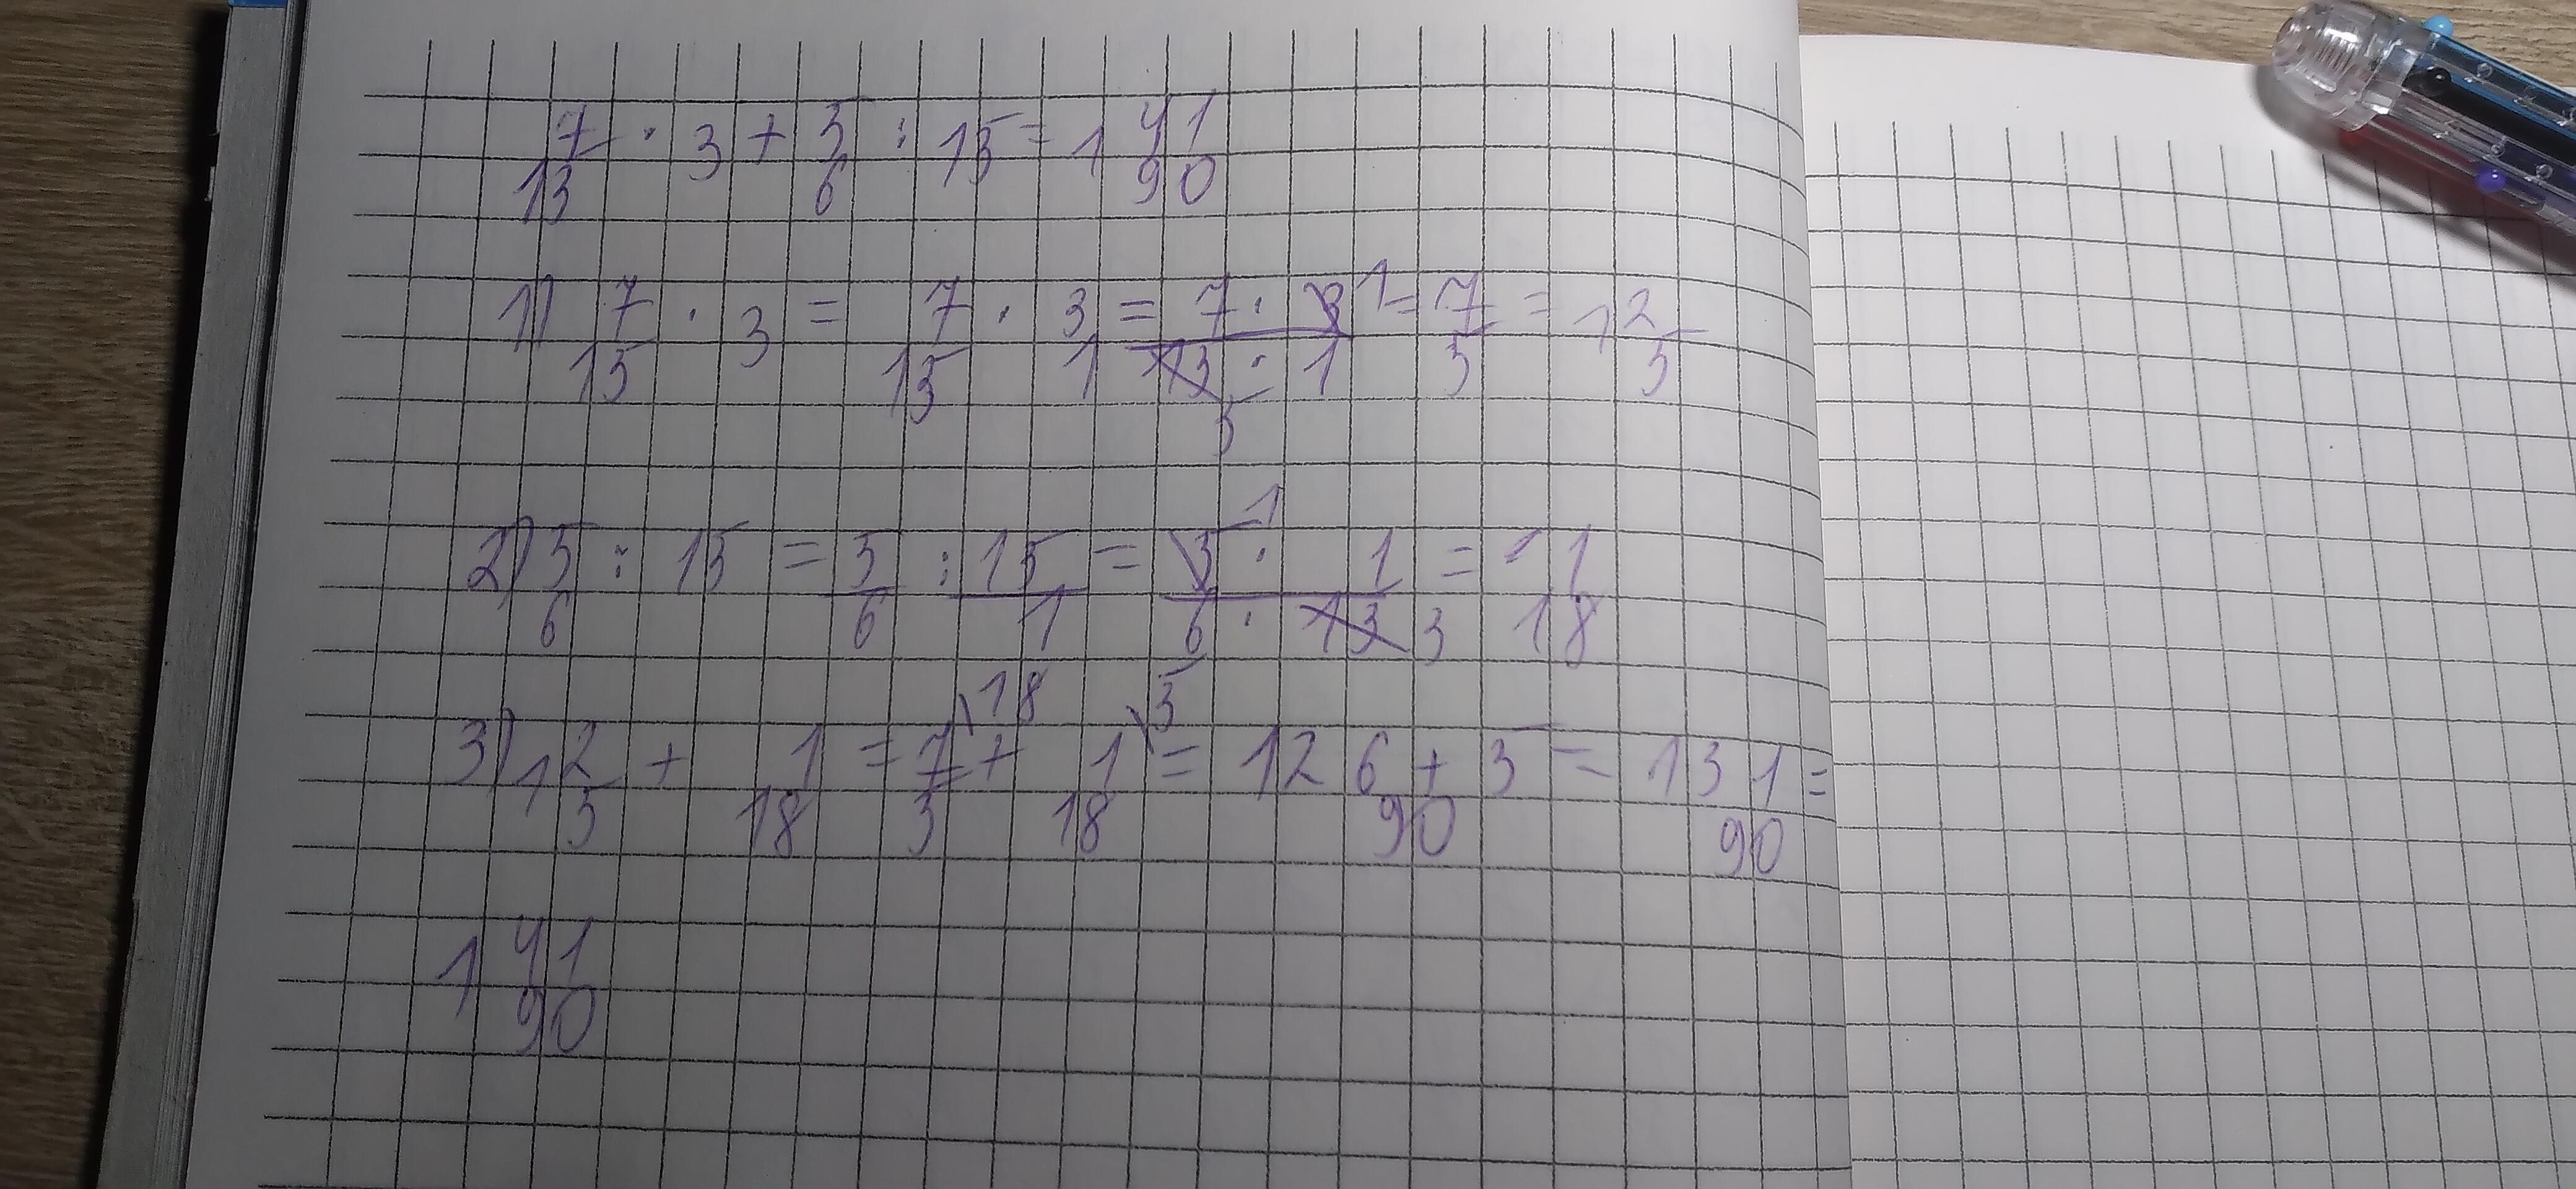 7/15 · 3 + 5/6 : 15 = 1 41/90
1) 7/15 · 3 = 7/15 · 3/1 = 7 · 3 1/15 · 1 5 = 7/5 = 1 2/5
2) 5/6 : 15 = 5/6 : 15/1 = 5 1 · 1/6 · 15 3 = 1/18
3) 1 2/5 + 1/18 = 7/5 \18 + 1/18 \5 = 126 + 5/90 = 131/90 =
1 41/90